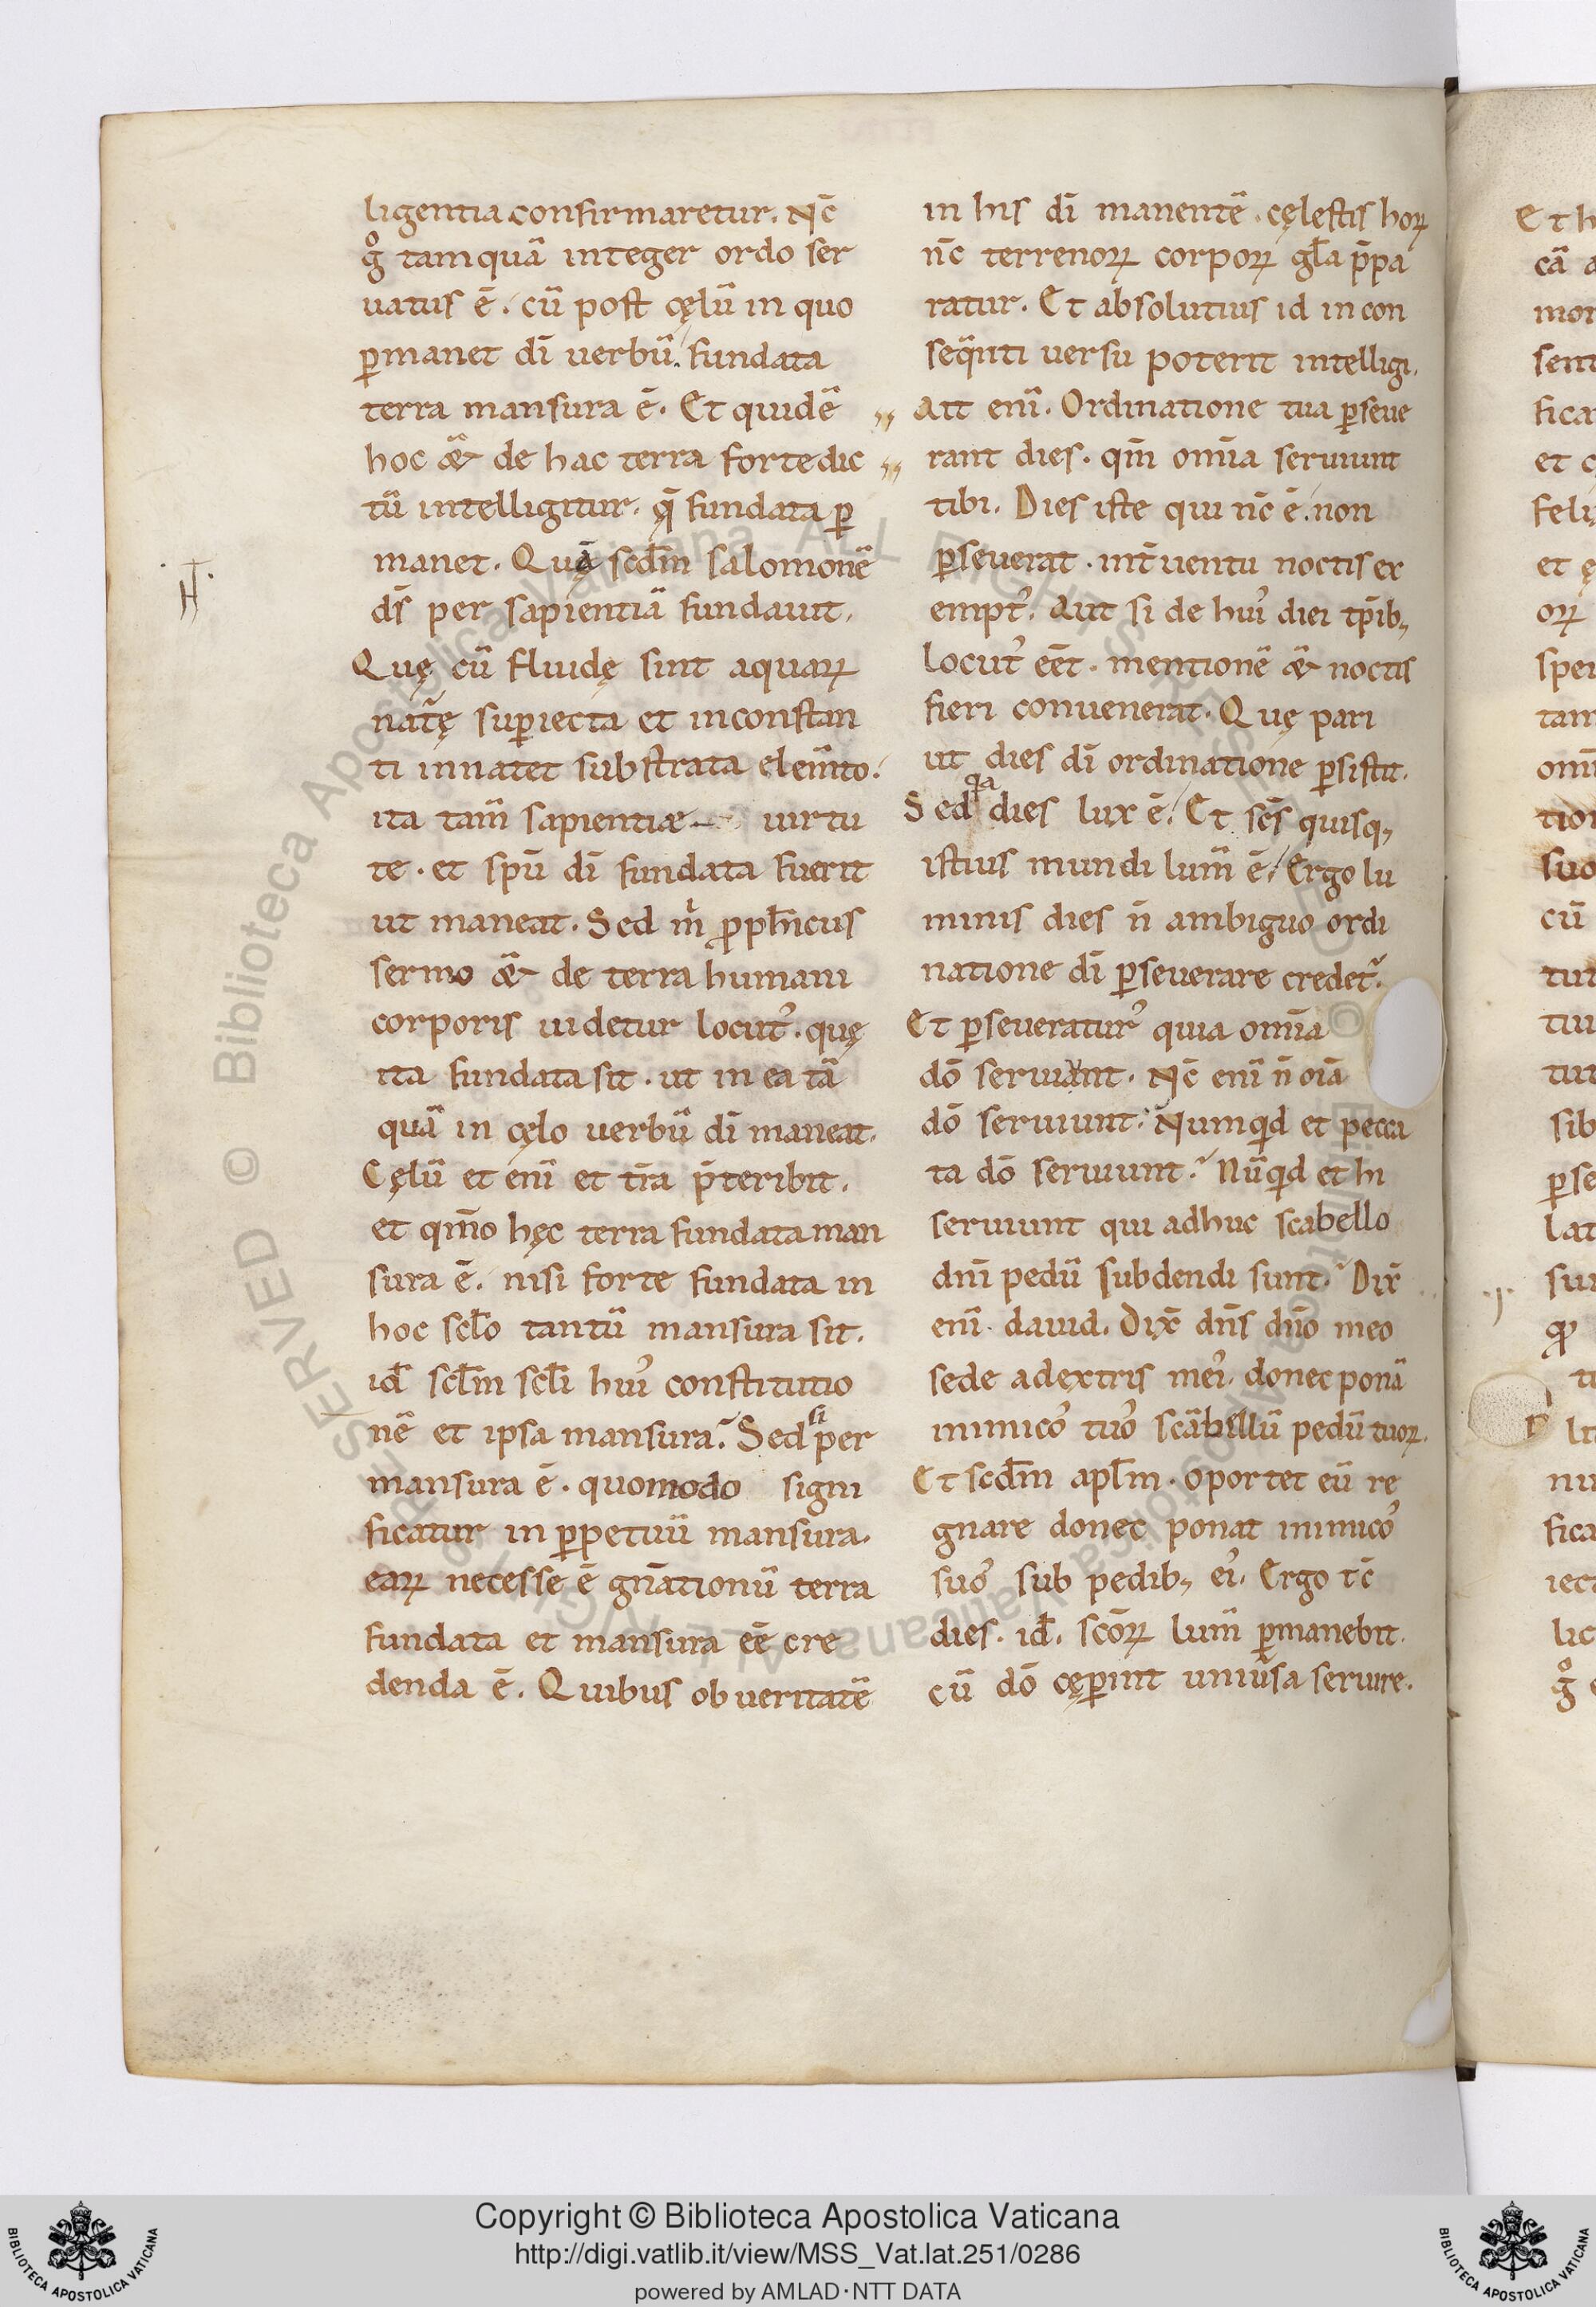 ligentia confirmaretur. Nc̄
g̊ tamquā integer ordo ser
uatus ē. cū post cęlū in quo
ꝑmanet dī uerbū. fundata
terra mansura ē. Et quidē
hoc &̄ de hac terra forte dic
tū intelligitur. q̨̄ fundata ꝑ
manet. Quā scd̄m salomonē
ds̄ per sapientiā fundauit.
Quę cū fluidę sint aquaꝝ
nat̄ę suꝑiecta et inconstan
ti innatet substrata elem̄to.
ita tam̄ sapientiæ uirtu
te. et spū dī fundata fuerit
ut maneat. Sed m̊ ꝓph̄icus
sermo &̄ de terra humani
corporis uidetur locut᾿. quę
ita fundata sit. ut in ea tā
quā in cęlo uerbū dī maneat.
Cęlū et enī et tr̄a p̄teribit.
et qm̄o hęc terra fundata man
sura ē. nisi forte fundata in
hoc scl̄o tantū mansura sit.
id̄ scd̄m scl̄i hui᾿ constitutio
nē et ipsa mansura. Sed si per
mansura ē. quomodo signi
ficatur in ꝑpetuū mansura.
eaꝝ necesse ē gn̄ationū terra
fundata et mansura eē cre
denda ē. Quibus ob ueritatē
in his dī manentē. cęlestis hoꝝ
nc̄ terrenoꝝ corpoꝝ gl̄a p̄pa
ratur. Et absolutius id in con
seq̄nti uersu poterit intelligi.
„ Ait enī. Ordinatione tua ꝑseue
„ rant dies. qm̄ omīa seruiunt
tibi. Dies iste qui nc̄ ē. non
ꝑseuerat. int̄uentu noctis ex
empt᾿. Aut si de hui᾿ diei tp̄ib,
locut᾿ eēt. mentionē &̄ noctis
fieri conuenerat. Quę pari
ut dies dī ordinatione ꝑsistit.
Sed qa dies lux ē. Et scs̄ quisq,
istius mundi lum̄ ē. Ergo lu
minis dies n̄ ambiguo ordi
natione dī ꝑseuerare credet᾿.
Et ꝑseueratur᾿ quia omīa
dō seruiant. Nc̄ enī n̄ oīa
dō seruiunt. Numqd et pecca
ta dō seruiunt. Nūqd et hi
seruiunt qui adhuc scabello
dnī pedū subdendi sunt. Dix̄
enī dauid. Dix̄ dn̄s dn̄o meo
sede adextris mei᾿. donec ponā
inimico᾿ tuo᾿ scābillū pedū tuoꝝ.
Et scd̄m apl̄m. oportet eū re
gnare donec ponat inimico᾿
suo᾿ sub pedib, ei᾿. Ergo tc̄
dies. id̄. scōꝝ lum̄ ꝑmanebit.
cū dō cęꝑint uniūsa seruire.
Copyright © Biblioteca Apostolica Vaticana
http://digi.vatlib.it/view/MSS_Vat.lat.251/0286
powered by AMLAD·NTT DATA
BIBLIOTECA APOSTOLICA VATICANA
BIBLIOTECA APOSTOLICA VATICANA